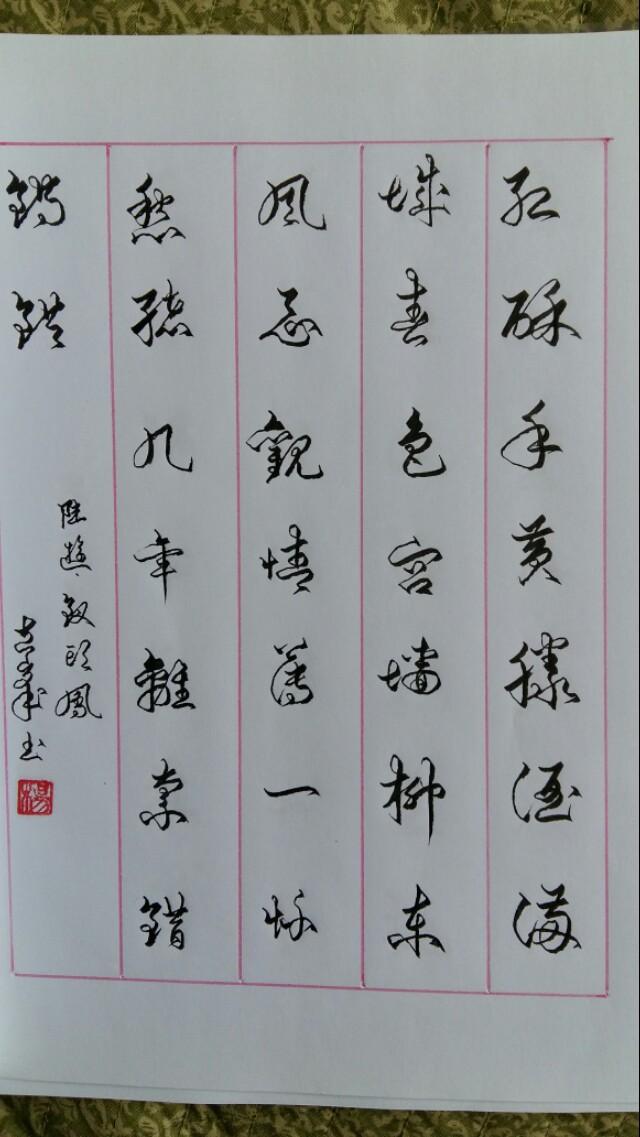 红酥手黄縢酒满
城春色宫墙柳东
风恶观情薄一怀
愁绪几年离索错
错错
陆游·钗头凤
书
杨